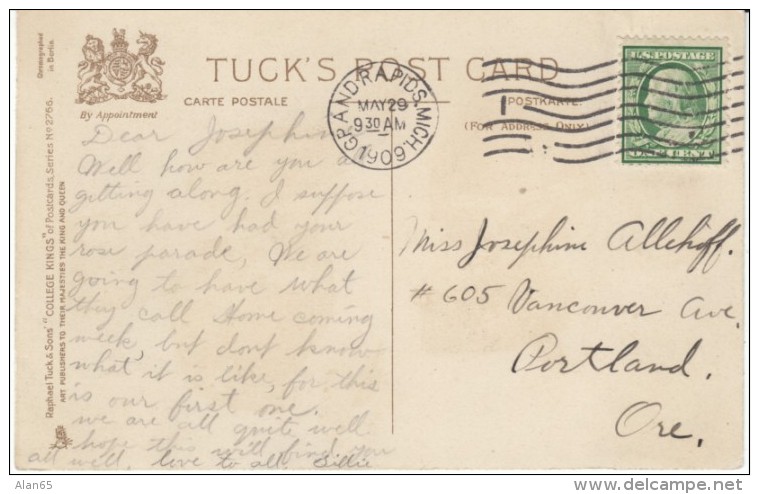 Chromographed
in Berlin.
By Appointment
TUCK'S POST CARD
CARTE POSTALE
POSTKARTE.
(FOR ADDRESS ONLY)
GRAND RAPIDS, MICH.
MAY 29
9 30 AM
1909
U.S. POSTAGE
ONE CENT
Raphael Tuck & Sons' "COLLEGE KINGS" of Postcards, Series No 2766.
ART PUBLISHERS TO THEIR MAJESTIES THE KING AND QUEEN
Dear Josephine
Well how are you all
getting along. I suppose
you have had your
rose parade, We are
going to have what
they call Home coming
week, but dont know
what it is like, for this
is our first one.
we are all quite well
hope this will find you
all well, love to all. Lillie
Miss Josephine Allehoff.
# 605 Vancouver Ave.
Portland.
Ore.
Alan65
delcampe.net